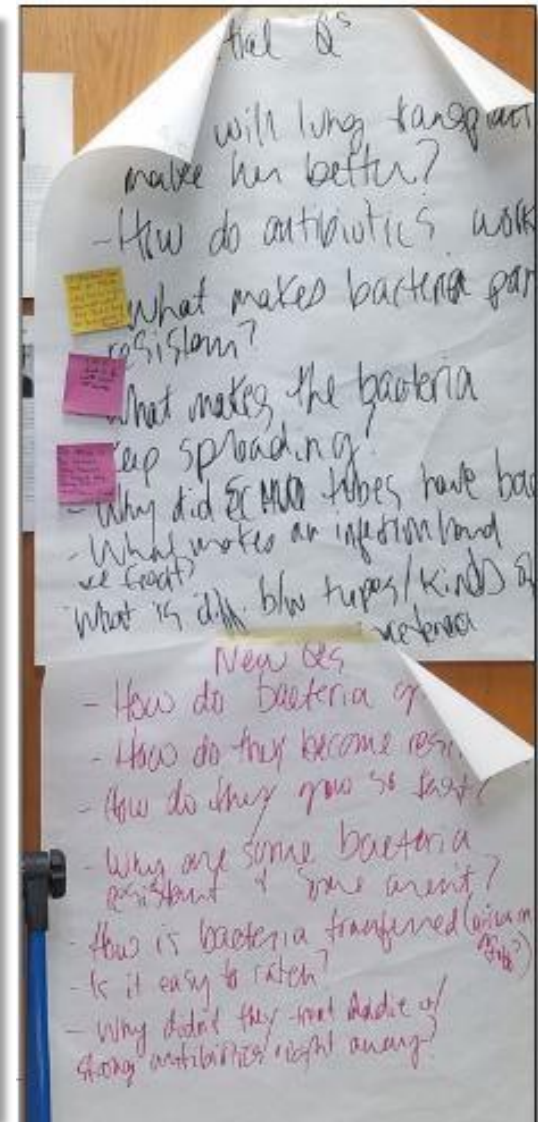 tial Qs
will lung transplant
make her better?
- How do antibiotics work
What makes bacteria pan
resistant?
What makes the bacteria
keep spreading?
- Why did ECMO tubes have bac
- What makes an infection hard
to treat?
What is diff. b/w types/kinds of
bacteria
New Qs
- How do bacteria gr
- How do they become resi
- How do they grow so fast?
- Why are some bacteria
resistant & some aren't?
- How is bacteria transferred (
- Is it easy to catch?
- Why didn't they treat Addie w/
strong antibiotics right away?